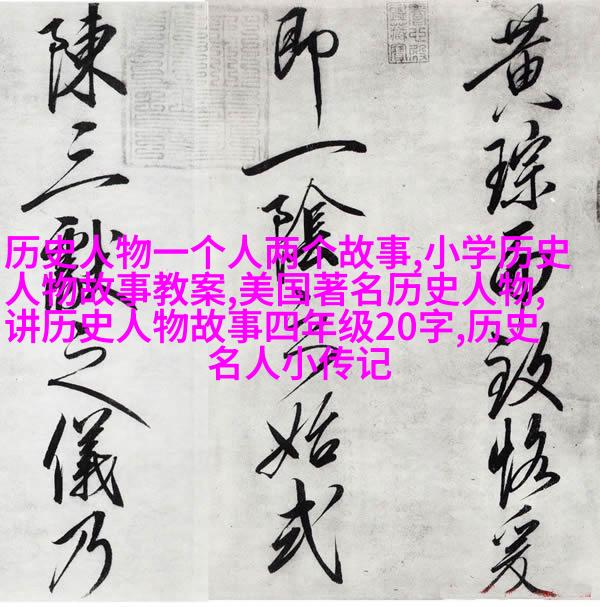 黄琮而致恪爰
即一陰始式
陳三獻之儀乃
历史人物一个人两个故事,小学历史
人物故事教案,美国著名历史人物,
讲历史人物故事四年级20字,历史
名人小传记